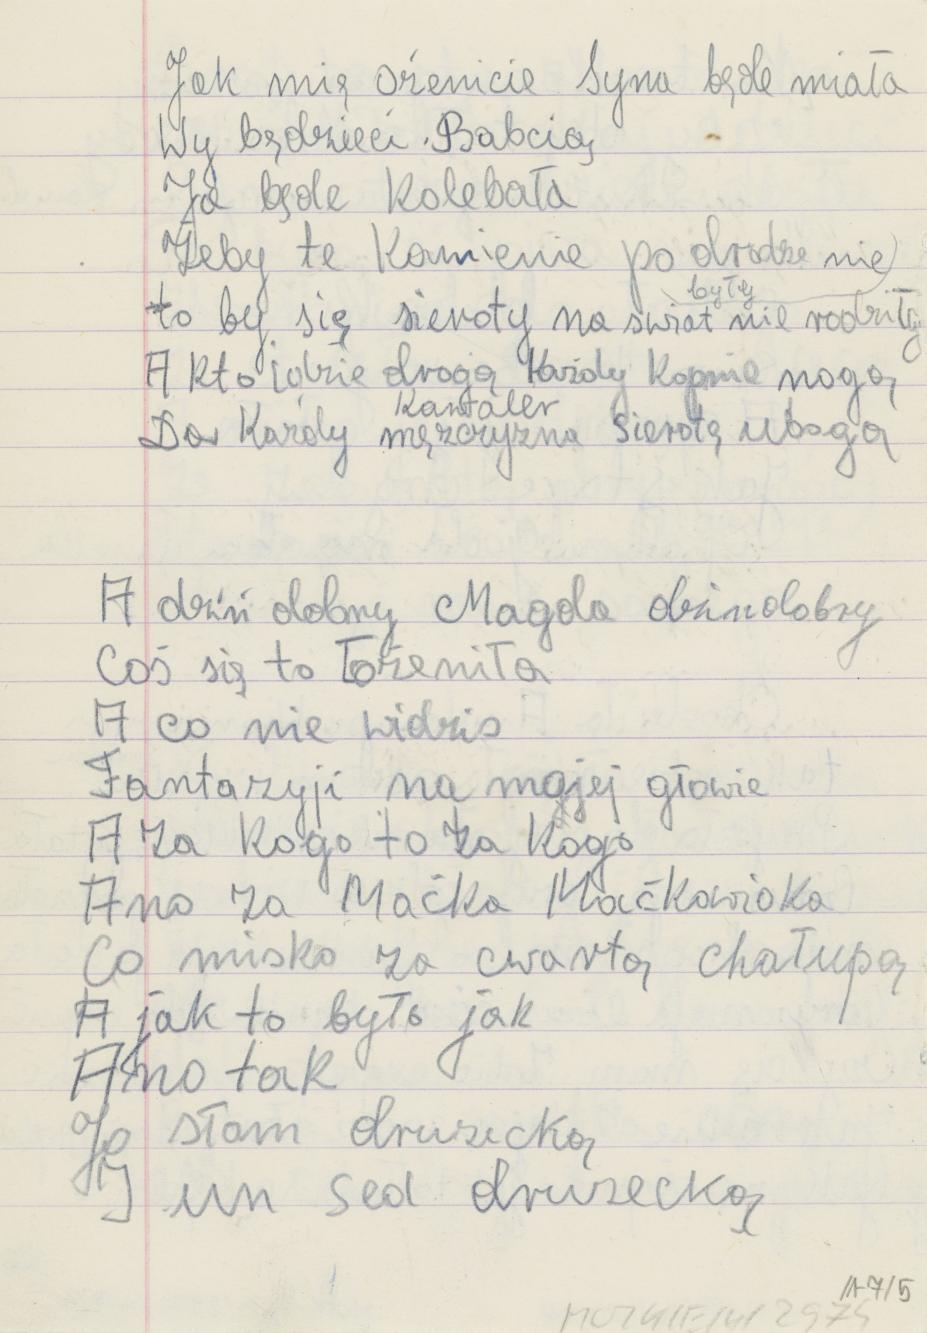 Jak mię ożenicie Syna będe miała
Wy będzieci Babcią
Ja będe Kolebała
Żeby te Kamienie po drodze nie
były
to by się sieroty na swiat nie rodziły
A kto idzie drogą Każdy Kopnie nogą
Kawaler
Da Każdy męzczyzna Sierotę ubogą
A dziń dobry Magda dzińdobry
Coś się to łożeniła
A co nie widzis
Fantazyji na mojej głowie
A za Kogo to za Kogo
Ano za Maćka Maćkowioka
Co misko za cwartą chałupą
A jak to było jak
Ano tak
Jo słam druzecką
I un sed druzecką
A7/5